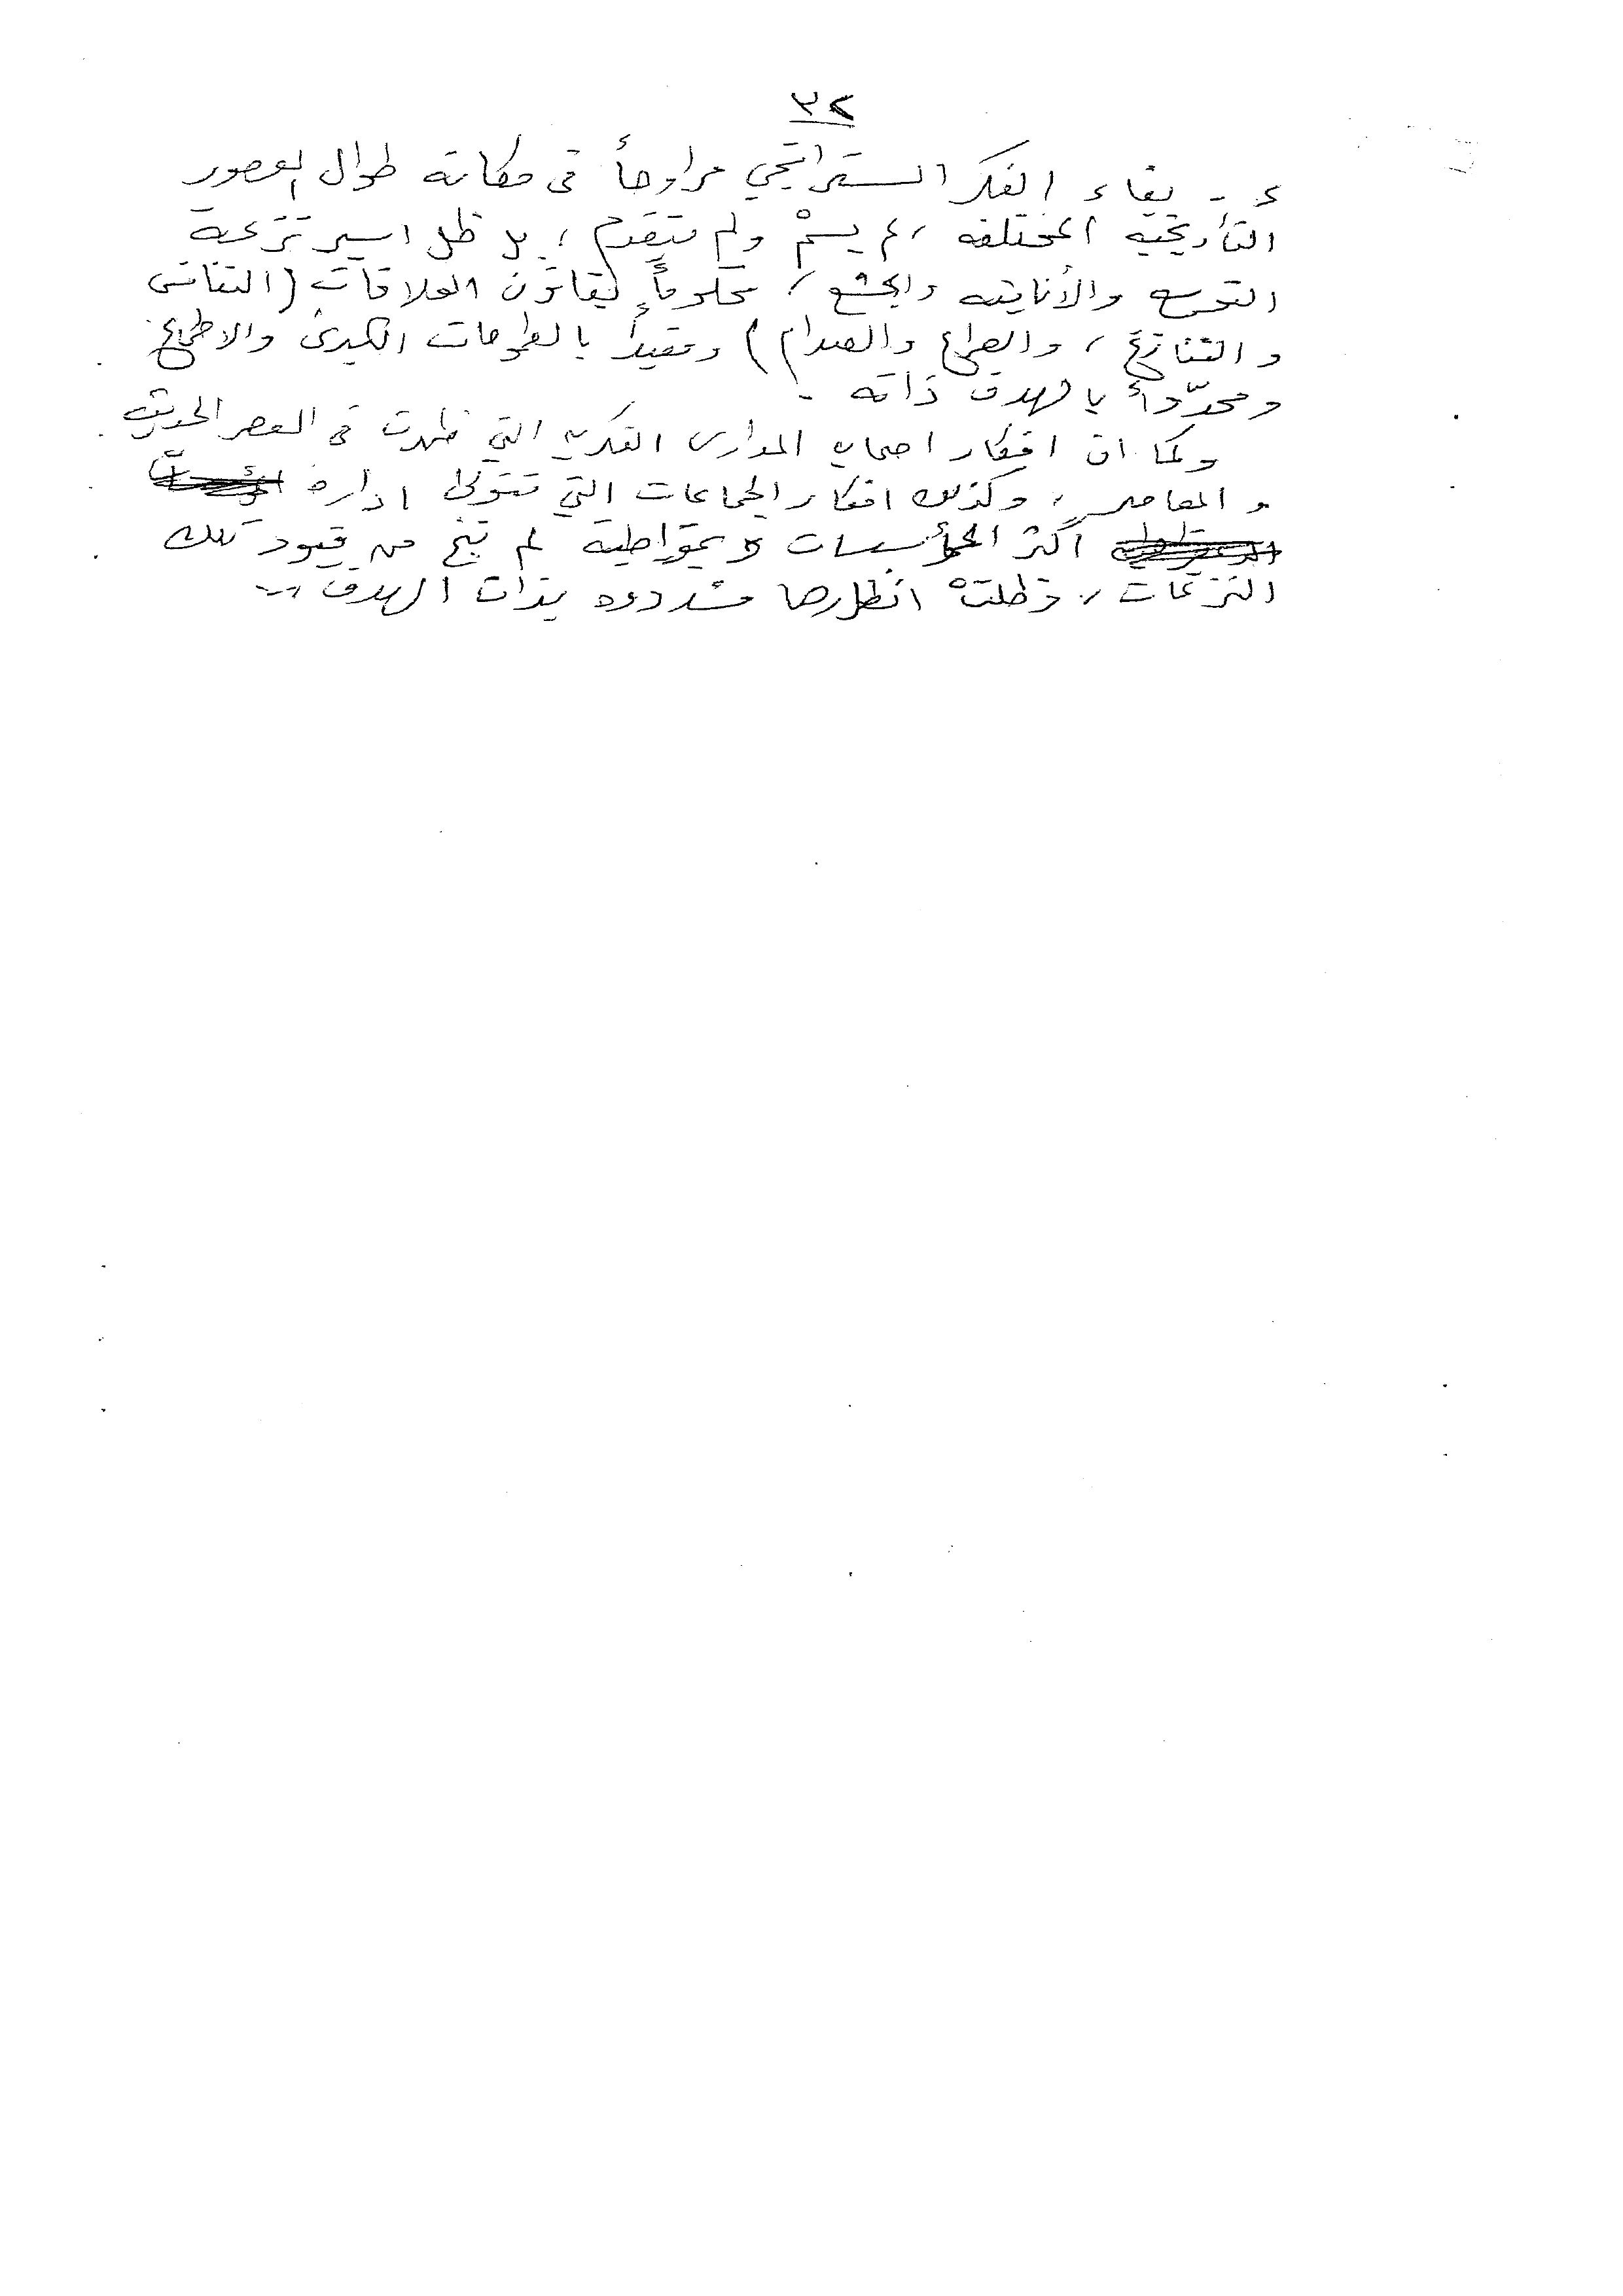 ٣٢
ء - بقاء الفكر الستراتيجي مراوحاً في مكانه طوال العصور
التأريخية المختلفه ، لم يسمْ ولم يتقدم ؛ بل ظل اسير نزعة
التوسع والأنانيه والجشع ، محكوماً لقانون العلاقات (التنافس
والتنازع ، والصراع والصدام) ومقيداً بالطموحات الكبرى والاطماع
ومحدّداً بالهدف ذاته .
وكما ان افكار اصحاب المدارس الفكريه التي ظهرت في العصر الحديث
والمعاصر ، وكذلك افكار الجماعات التي تتولى ادارة
اكثر المؤسسات ديمقراطية لم تنج من قيود تلك
النزعات ، وظلتْ انظارها مشدوده بذات الهدف ..